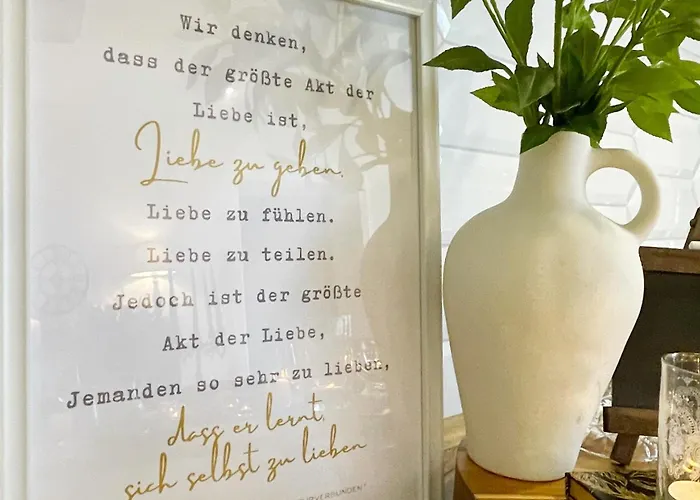 Wir denken,
dass der größte Akt der
Liebe ist,
Liebe zu geben.
Liebe zu fühlen.
Liebe zu teilen.
Jedoch ist der größte
Akt der Liebe,
Jemanden so sehr zu lieben,
dass er lernt,
sich selbst zu lieben